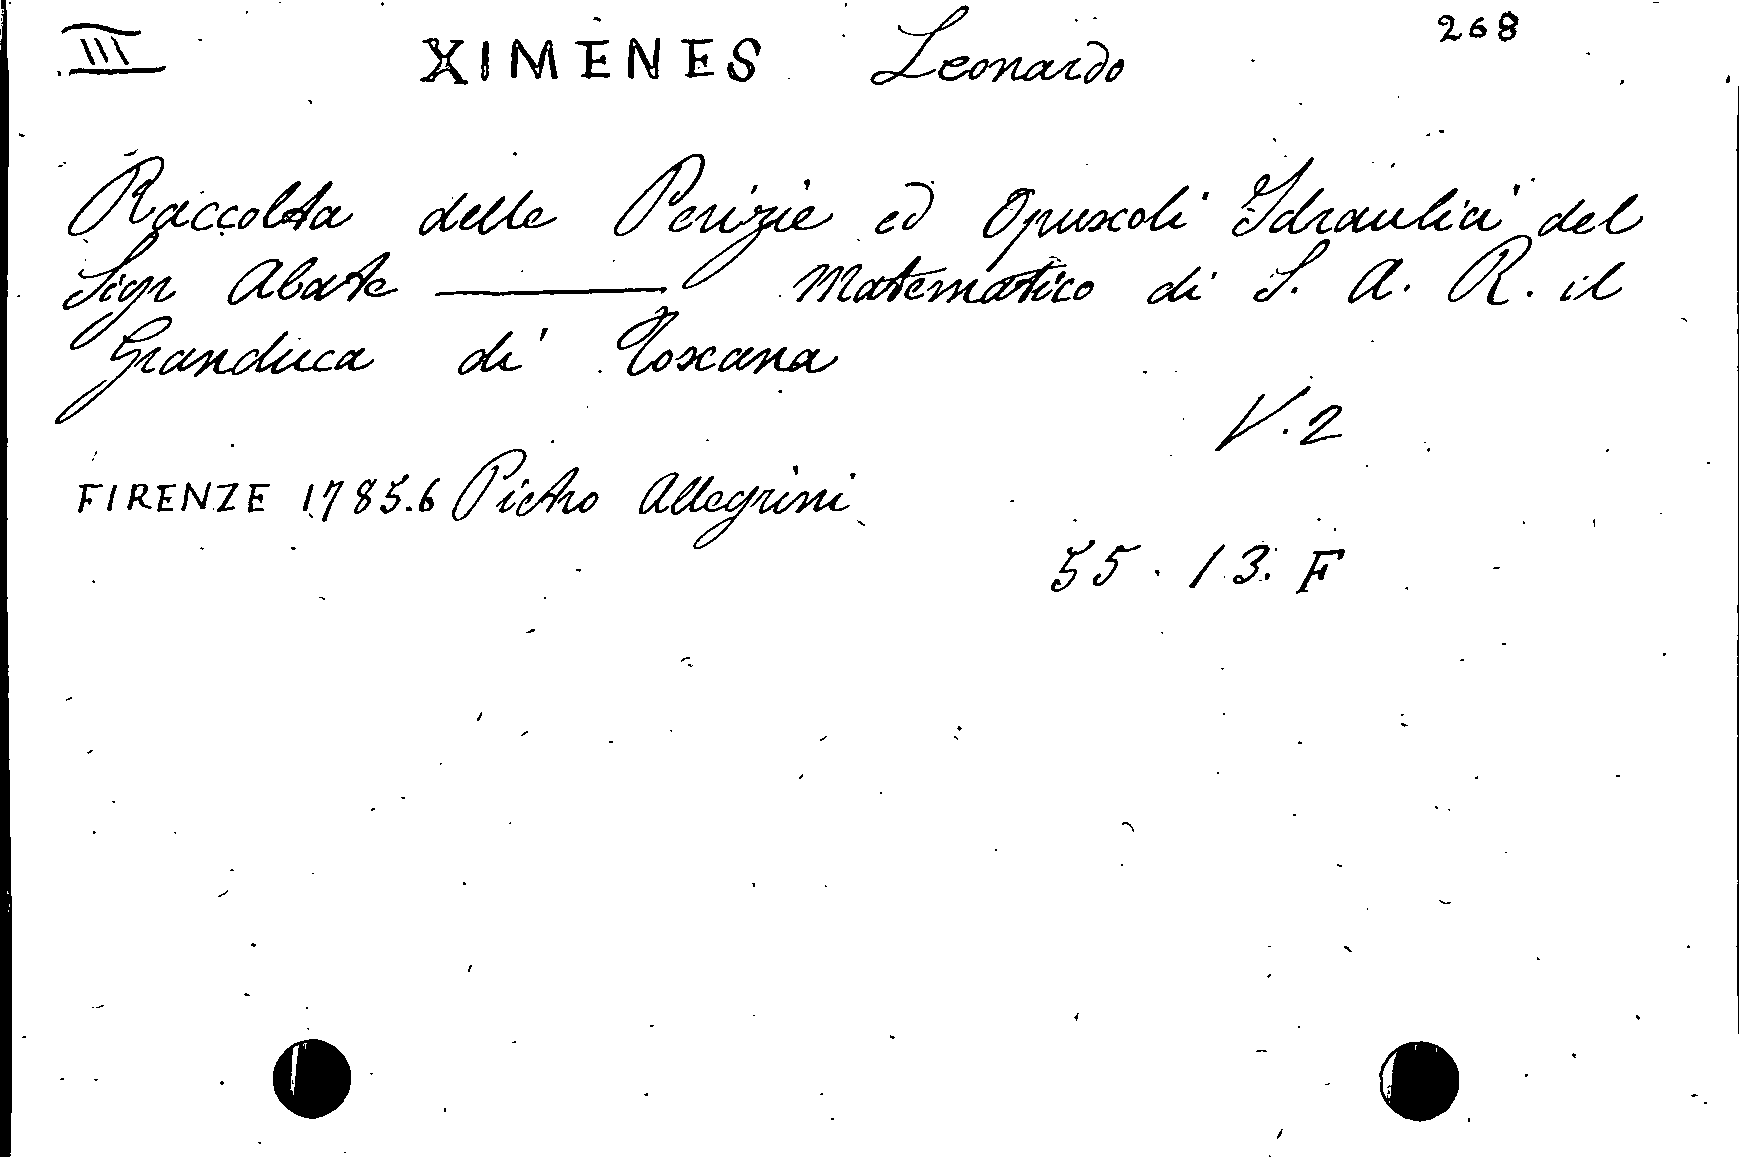 III XIMENES Leonardo 268
Raccolta delle Perizie ed Opuscoli Idraulici del
Sigr Abate ——— Matematico di S. A. R. il
Granduca di Toscana
V. 2
FIRENZE 1785.6 Pietro Allegrini
55. 13. F